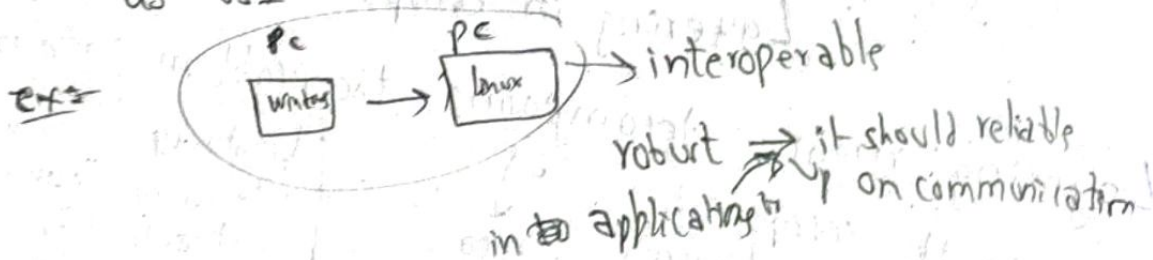 ex:
PC PC
Linux → interoperable
robust ⇒ it should reliable
on communication
in applications